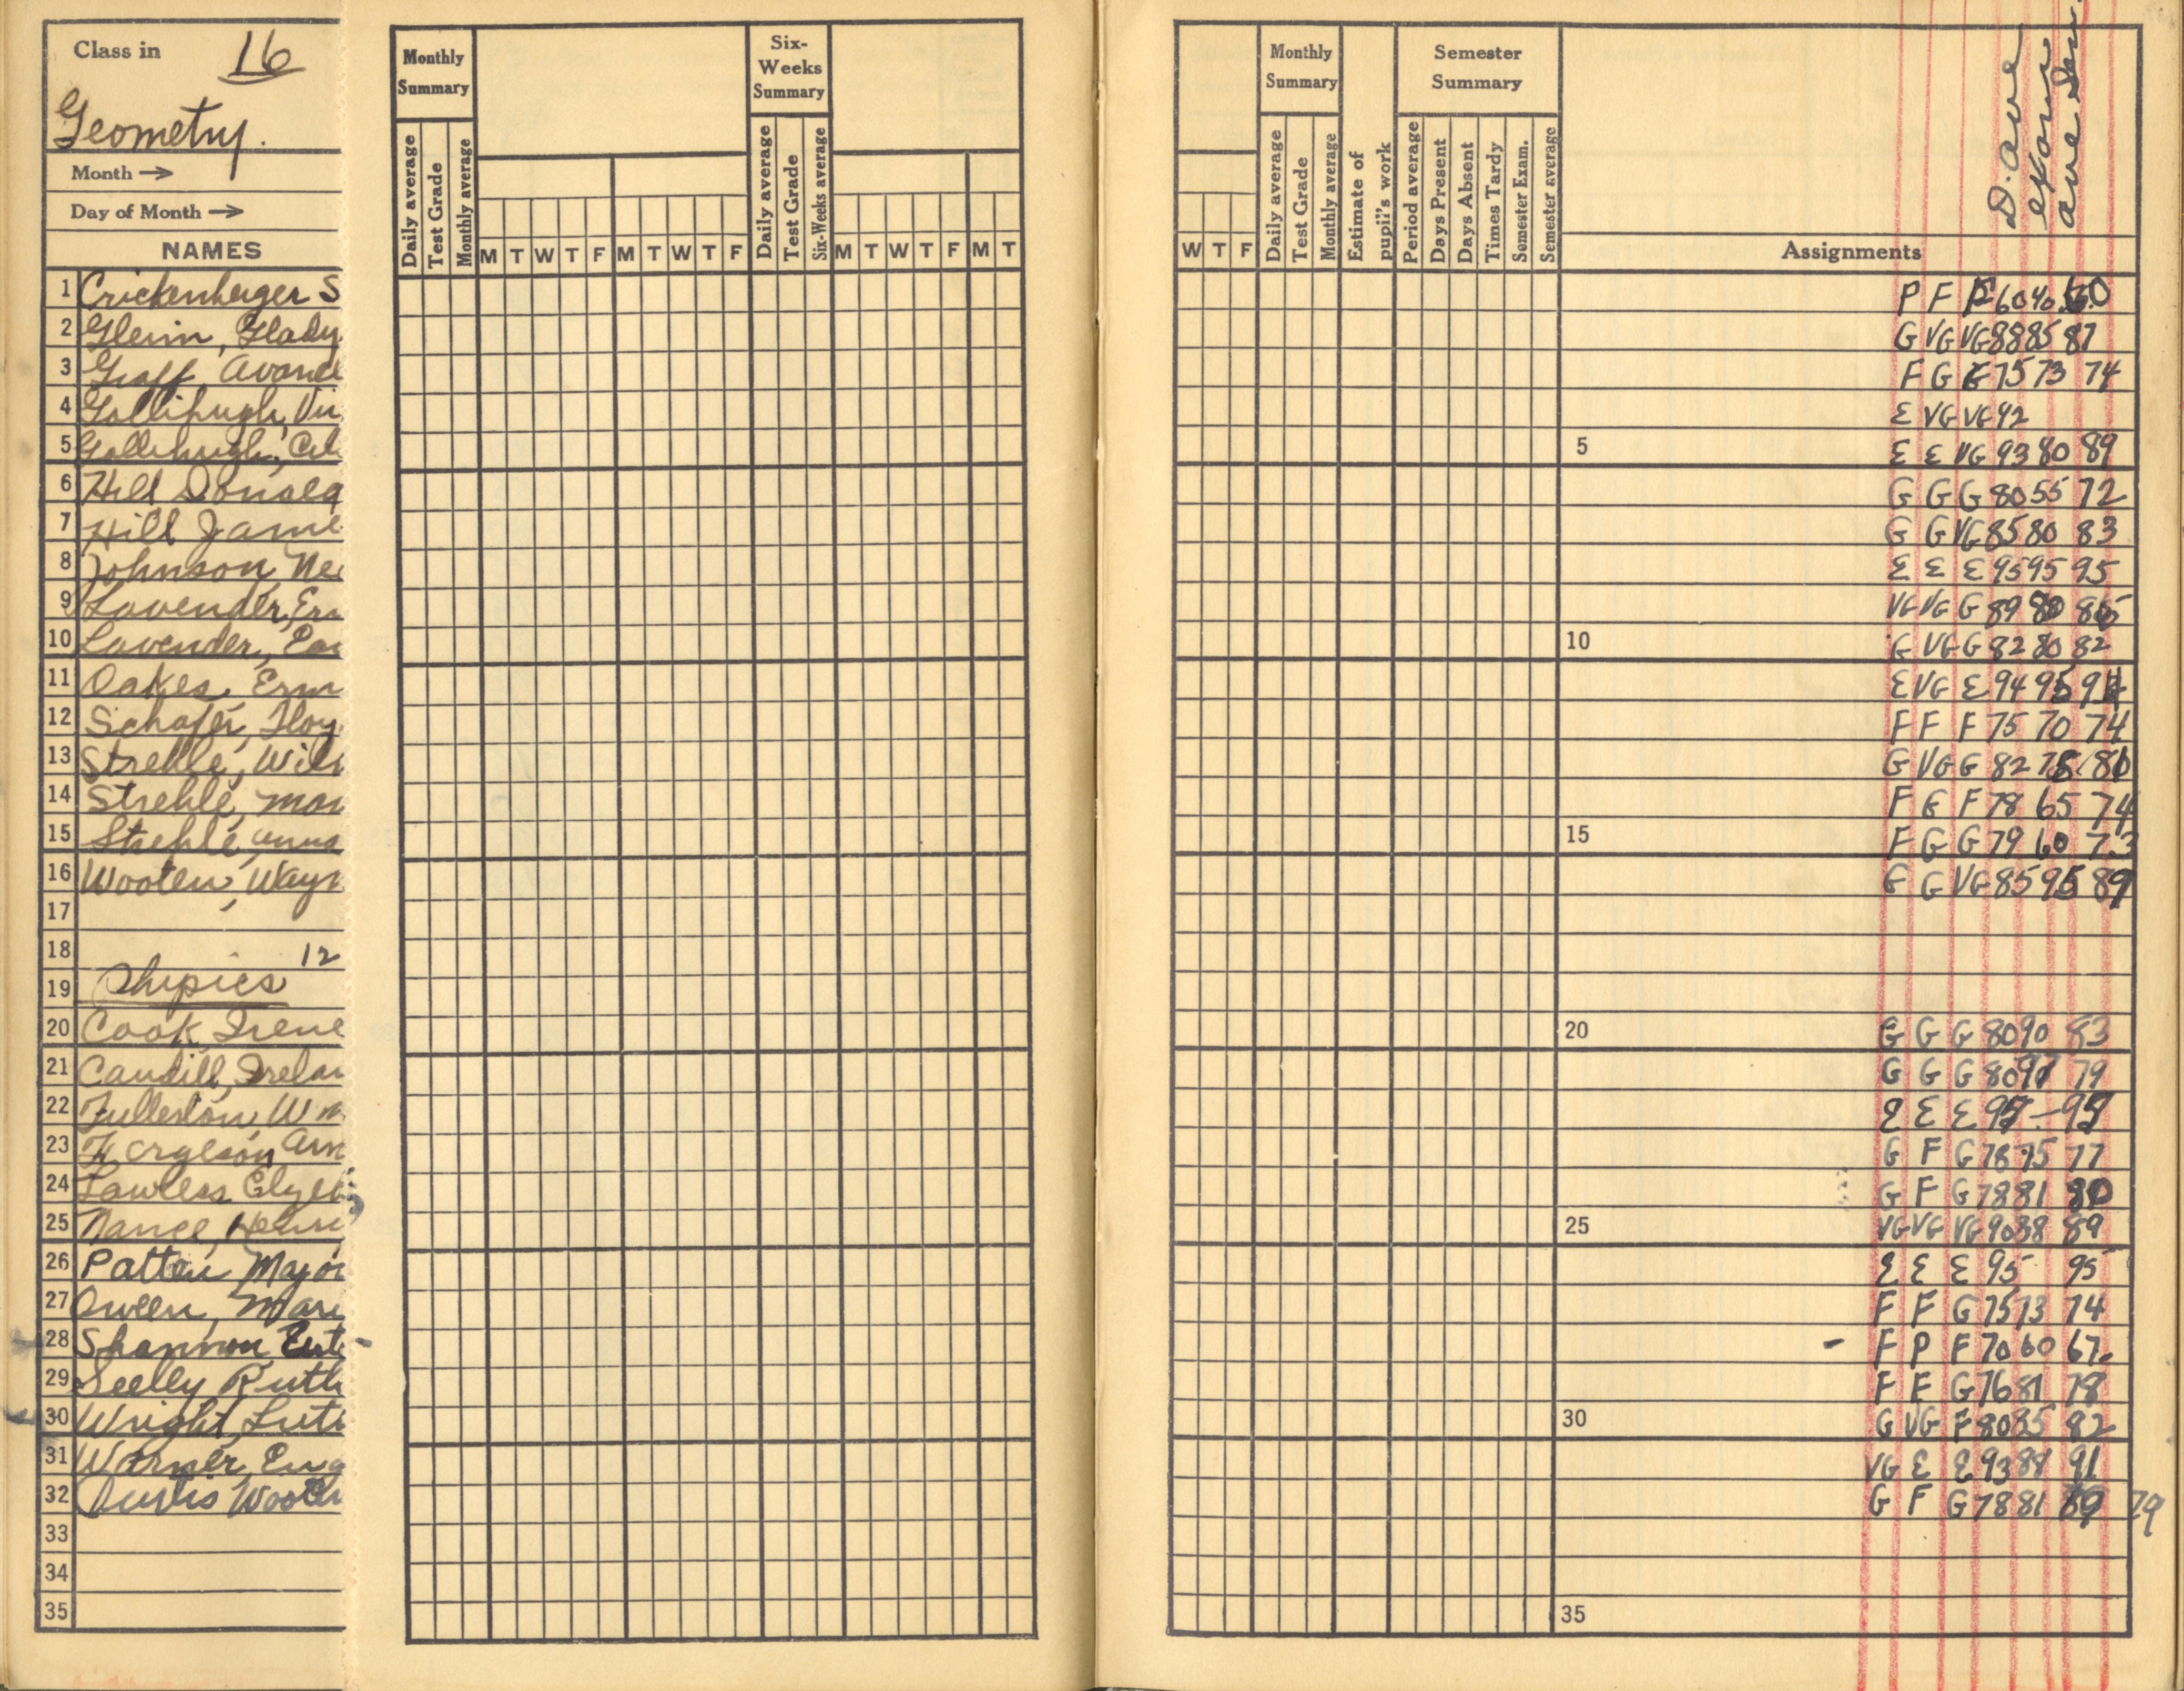 Class in 16
Geometry.
Month →
Day of Month →
NAMES
1 Crickenberger S
2 Glenn, Glady
3 Graff, Avanel
4 Gallihugh, Vir
5 Gallihugh, Cel
6 Hill Donald
7 Hill Jame
8 Johnson, Ne
9 Lavender, Er
10 Lavender, Ea
11 Oakes, Erm
12 Schafer, Floy
13 Strehle, Wil
14 Strehle, Mar
15 Strehle, Anna
16 Wooten, Wayn
17
18 12
19 Physics
20 Cook, Irene
21 Caudill, Irelan
22 Fullerton, Wm
23 Fergeson Arn
24 Lawless Elye
25 Nance, Henri
26 Patton Major
27 Queen, Mari
28 Shannon Est
29 Seelly Ruth
30 Wright, Lut
31 Warner, Eug
32 Curtis Woote
33
34
35
Monthly Summary
Six-Weeks Summary
Daily average
Test Grade
Monthly average
Daily average
Test Grade
Six-Weeks average
M T W T F M T W T F
M T W T F M T
Monthly Summary
Semester Summary
Daily average
Test Grade
Monthly average
Estimate of pupil's work
Period average
Days Present
Days Absent
Times Tardy
Semester Exam.
Semester average
W T F
D. ave
exam
ave Sem.
Assignments
P F F 60 40 50
G VG VG 88 85 87
F G G 75 73 74
E VG VG 92
5 E E VG 93 80 89
G G G 80 55 72
G G VG 85 80 83
E E E 95 95 95
VG VG G 89 80 86
10 G VG G 82 80 82
E VG E 94 95 94
F F F 75 70 74
G VG G 82 78 81
F G F 78 65 74
15 F G G 79 60 73
G G VG 85 95 89
20 G G G 80 90 83
G G G 80 97 79
E E E 95 — 95
G F G 78 75 77
G F G 78 81 80
25 VG VG VG 90 88 89
E E E 95 95
F F G 75 73 74
- F P F 70 60 67.
F F G 76 81 78
30 G VG F 80 85 82
VG E E 93 88 91
G F G 78 81 79
35